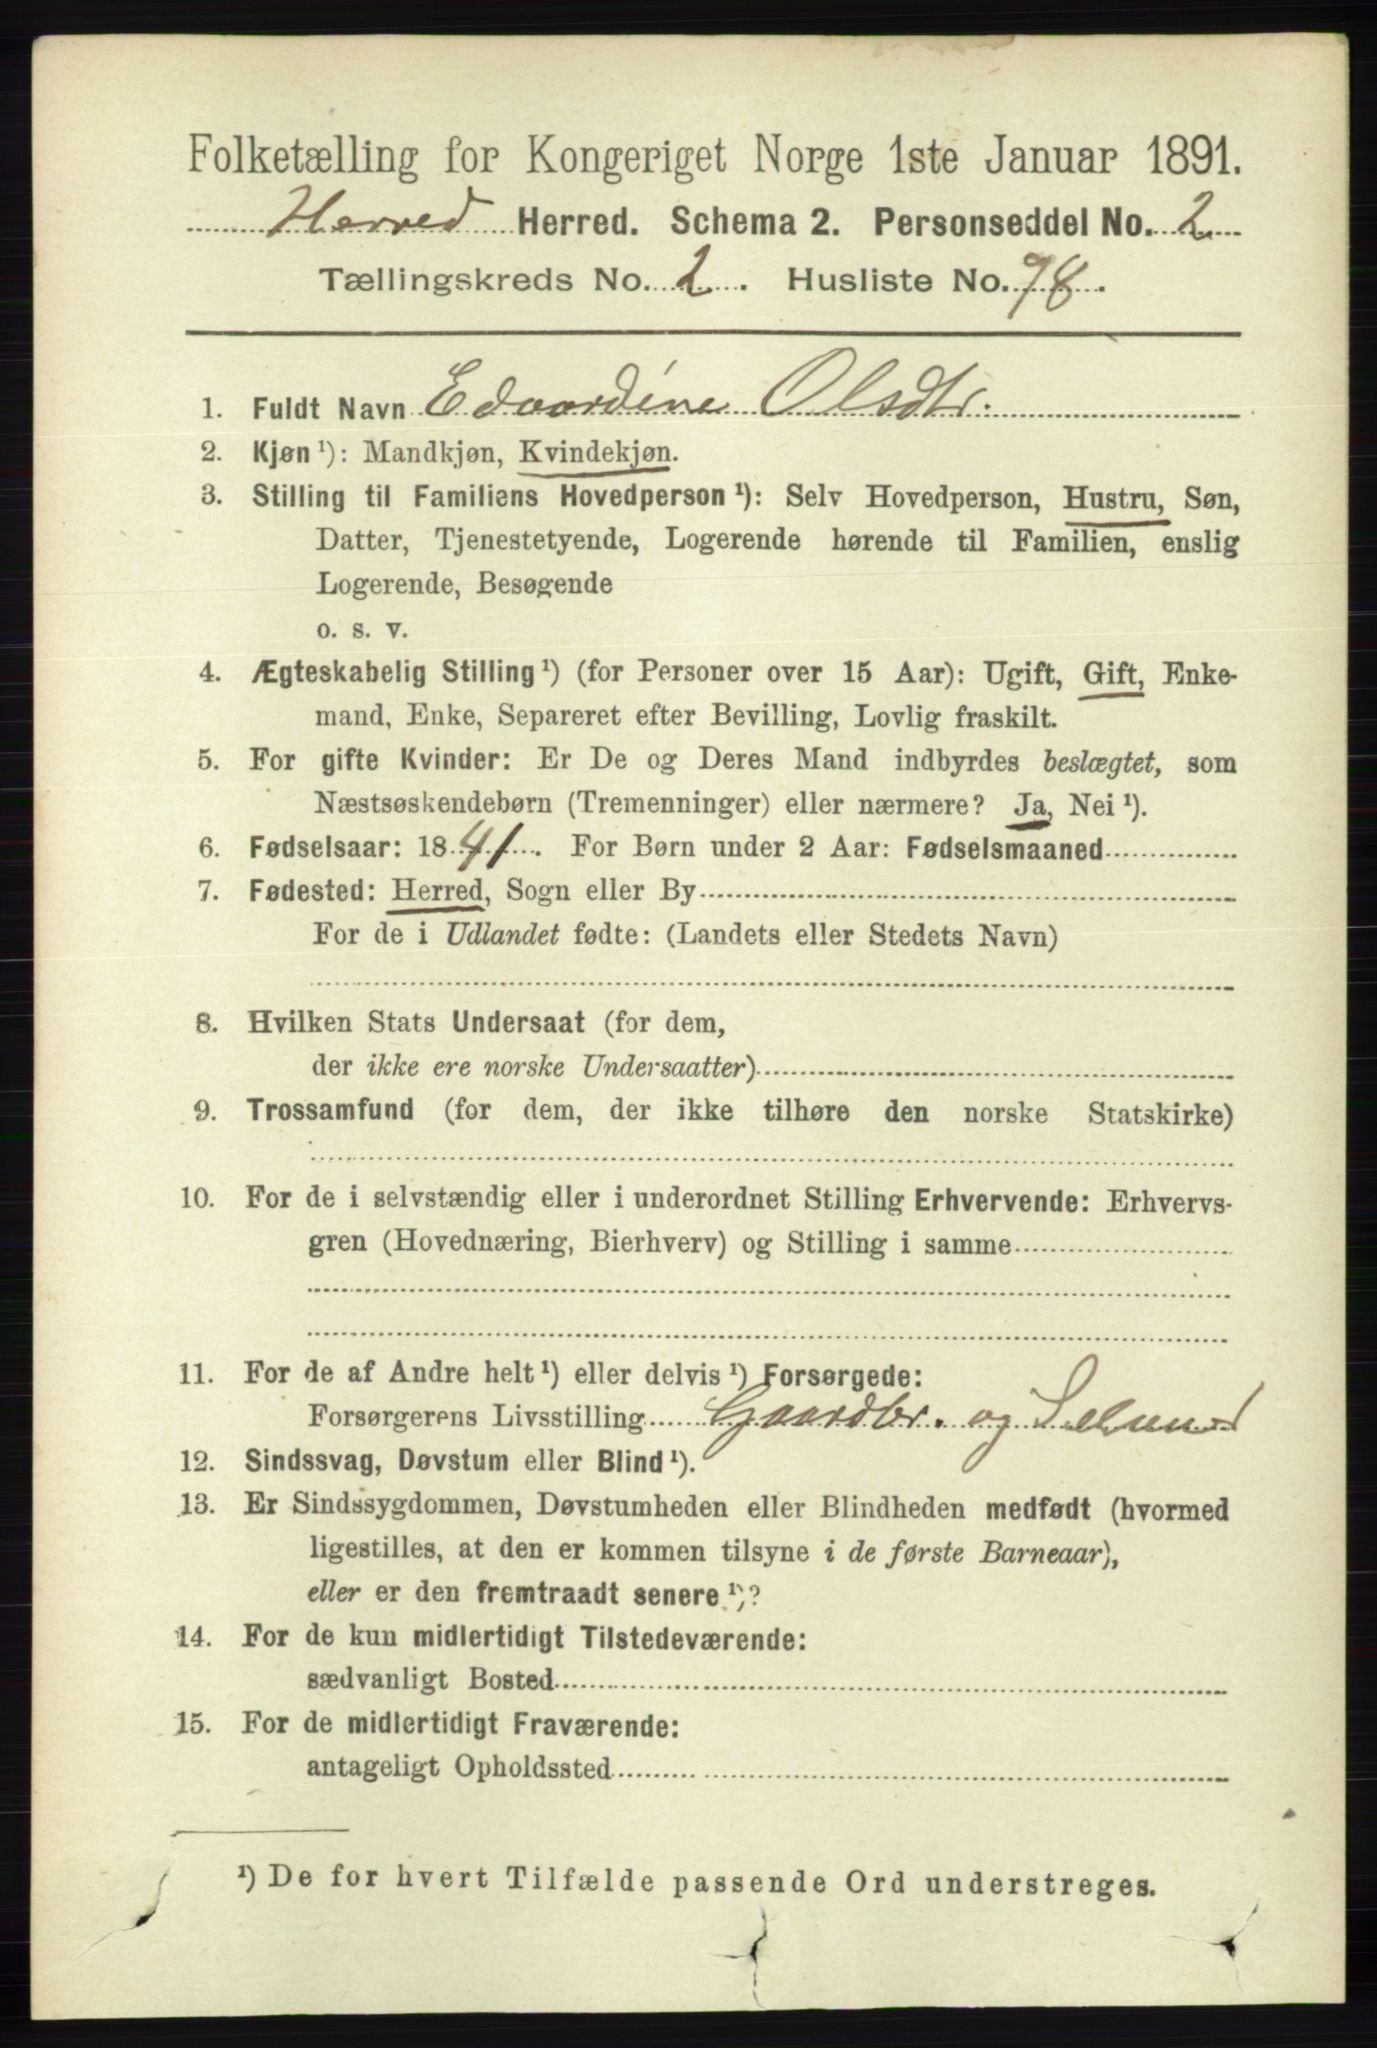 Folketælling for Kongeriget Norge 1ste Januar 1891.
Herred Herred. Schema 2. Personseddel No. 2
Tællingskreds No. 2. Husliste No. 78.
1. Fuldt Navn Edvardine Olsdtr.
2. Kjøn¹): Mandkjøn, Kvindekjøn.
3. Stilling til Familiens Hovedperson¹): Selv Hovedperson, Hustru, Søn,
Datter, Tjenestetyende, Logerende hørende til Familien, enslig
Logerende, Besøgende
o. s. v.
4. Ægteskabelig Stilling¹) (for Personer over 15 Aar): Ugift, Gift, Enke-
mand, Enke, Separeret efter Bevilling, Lovlig fraskilt.
5. For gifte Kvinder: Er De og Deres Mand indbyrdes beslægtet, som
Næstsøskendebørn (Tremenninger) eller nærmere? Ja, Nei¹).
6. Fødselsaar: 1841. For Børn under 2 Aar: Fødselsmaaned
7. Fødested: Herred, Sogn eller By
For de i Udlandet fødte: (Landets eller Stedets Navn)
8. Hvilken Stats Undersaat (for dem,
der ikke ere norske Undersaatter)
9. Trossamfund (for dem, der ikke tilhøre den norske Statskirke)
10. For de i selvstændig eller i underordnet Stilling Erhvervende: Erhvervs-
gren (Hovednæring, Bierhverv) og Stilling i samme
11. For de af Andre helt¹) eller delvis¹) Forsørgede:
Forsørgerens Livsstilling Gaardbr. og
12. Sindssvag, Døvstum eller Blind¹).
13. Er Sindssygdommen, Døvstumheden eller Blindheden medfødt (hvormed
ligestilles, at den er kommen tilsyne i de første Barneaar),
eller er den fremtraadt senere¹)?
14. For de kun midlertidigt Tilstedeværende:
sædvanligt Bosted
15. For de midlertidigt Fraværende:
antageligt Opholdssted
¹) De for hvert Tilfælde passende Ord understreges.